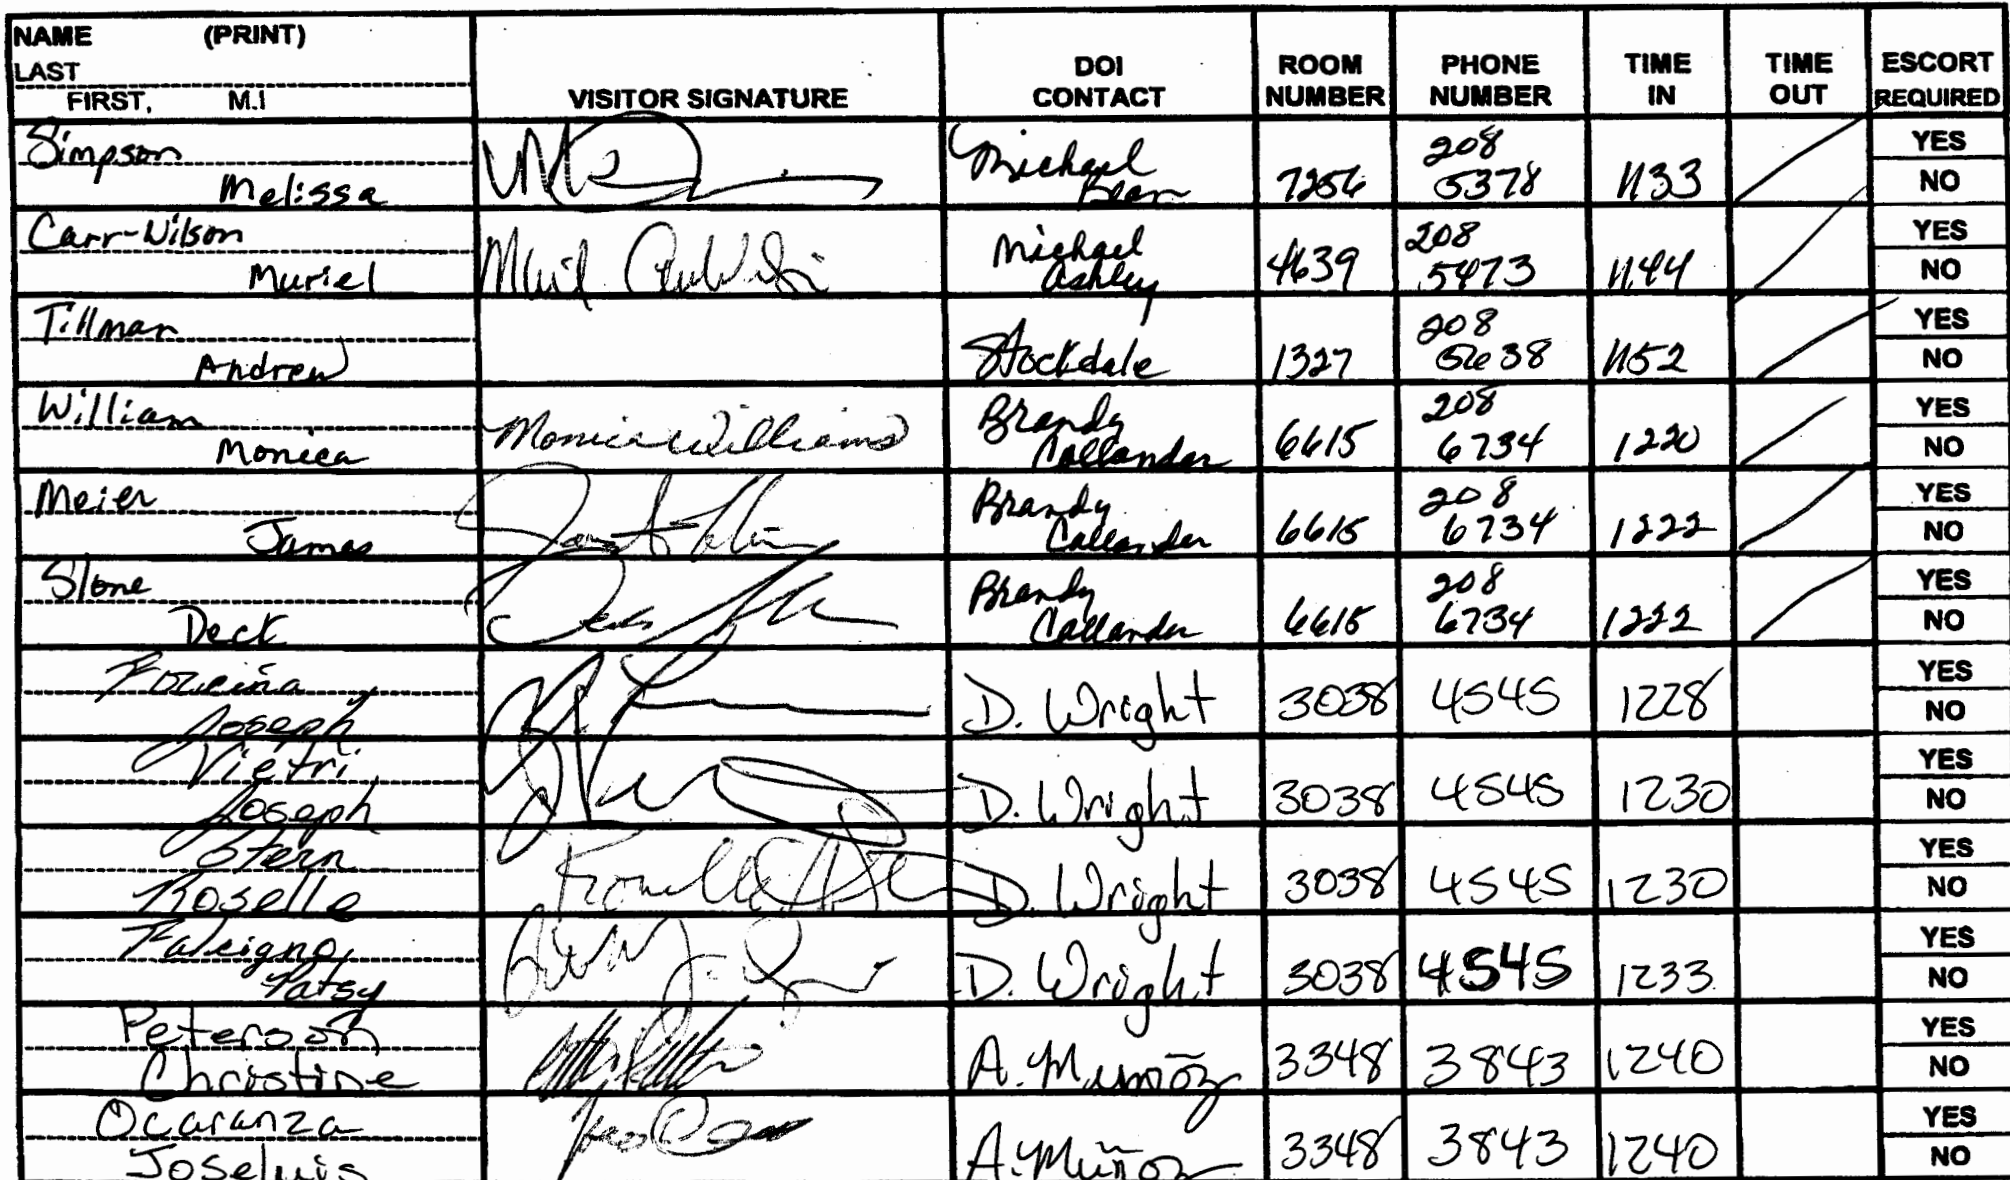 NAME (PRINT)
LAST
FIRST, M.I
VISITOR SIGNATURE
DOI CONTACT
ROOM NUMBER
PHONE NUMBER
TIME IN
TIME OUT
ESCORT REQUIRED
Simpson
Melissa
Michael Bean
7256
208 5378
1133
YES
NO
Carr-Wilson
Muriel
Michael Ashley
4639
208 5473
1144
YES
NO
Tillman
Andrew
Stockdale
1327
208 5638
1152
YES
NO
William
Monica
Monica Williams
Brandy Callander
6615
208 6734
1220
YES
NO
Meier
James
Brandy Callander
6615
208 6734
1222
YES
NO
Slone
Deck
Brandy Callander
6615
208 6734
1222
YES
NO
Joseph
D. Wright
3038
4545
1228
YES
NO
Vietri
Joseph
D. Wright
3038
4545
1230
YES
NO
Stern
Roselle
D. Wright
3038
4545
1230
YES
NO
Falcigno
Patsy
D. Wright
3038
4545
1233
YES
NO
Peterson
Christine
A. Muñoz
3348
3843
1240
YES
NO
Ocaranza
Joseluis
A. Muñoz
3348
3843
1240
YES
NO